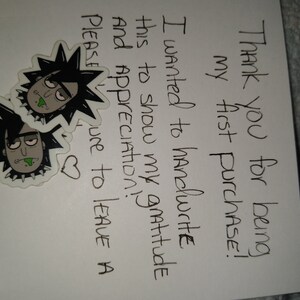 Thank you for being
my first purchase!
I wanted to handwrite
this to show my gratitude
and appreciation!
Please ure to leave a